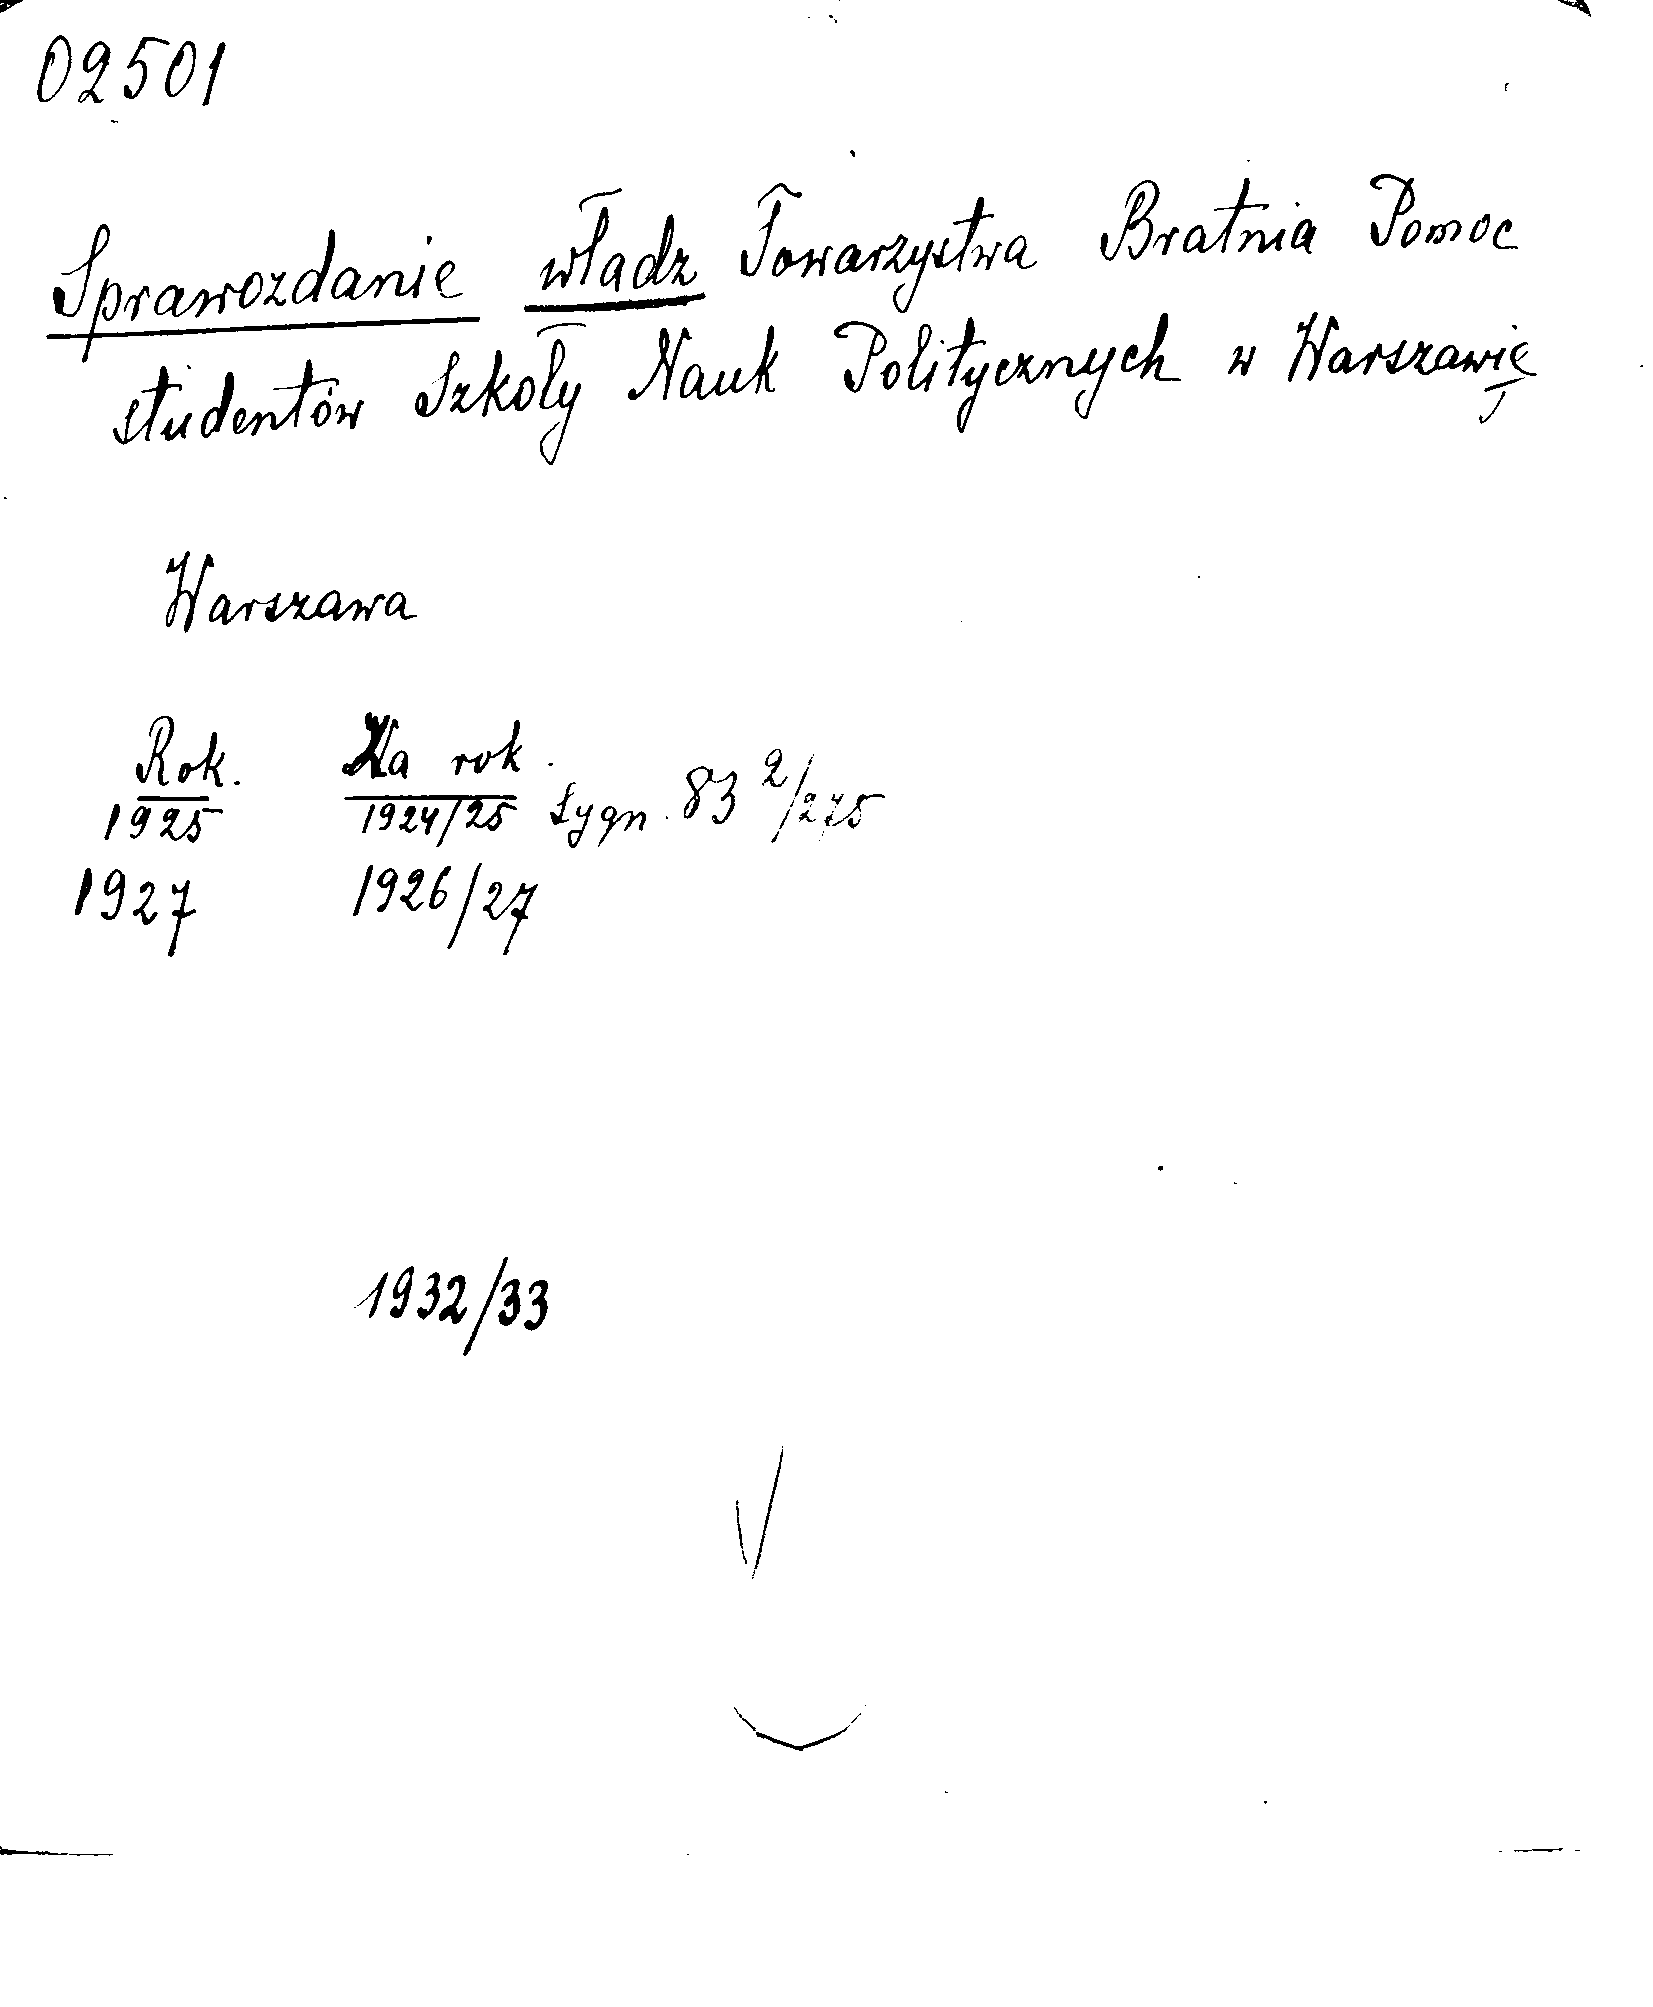 02501
Sprawozdanie władz Towarzystwa Bratnia Pomoc
studentów Szkoły Nauk Politycznych w Warszawie
Warszawa
Rok. Za rok.
1925 1924/25 Sygn. 83 2/275
1927 1926/27
1932/33